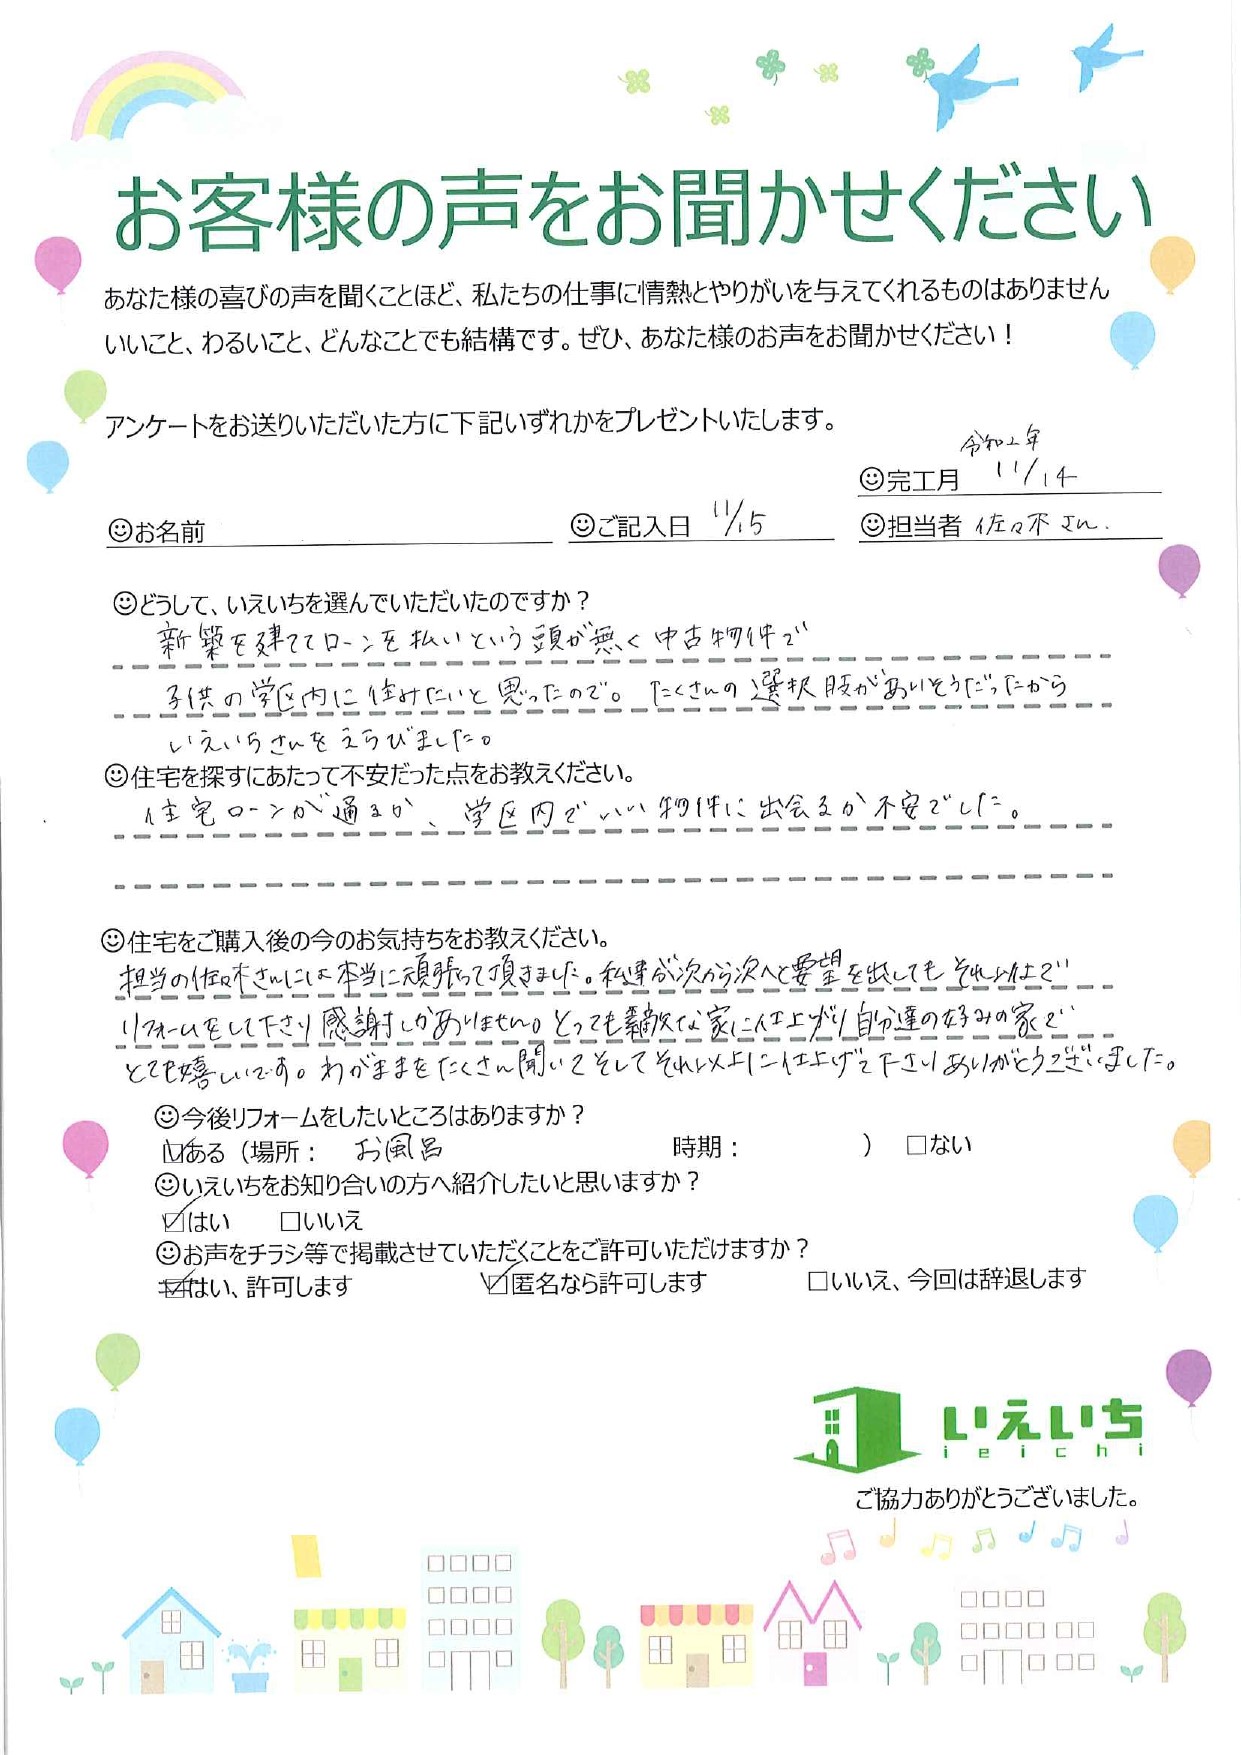 お客様の声をお聞かせください
あなた様の喜びの声を聞くことほど、私たちの仕事に情熱とやりがいを与えてくれるものはありません
いいこと、わるいこと、どんなことでも結構です。ぜひ、あなた様のお声をお聞かせください！
アンケートをお送りいただいた方に下記いずれかをプレゼントいたします。
令和2年
完工月 11/14
お名前 ご記入日 11/15 担当者 佐々木さん.
どうして、いえいちを選んでいただいたのですか？
新築を建ててローンを払いという頭が無く中古物件で
子供の学区内に住みたいと思ったので。たくさんの選択肢がありそうだったから
いえいちさんをえらびました。
住宅を探すにあたって不安だった点をお教えください。
住宅ローンが通るか、学区内でいい物件に出会るか不安でした。
住宅をご購入後の今のお気持ちをお教えください。
担当の佐々木さんには本当に頑張って頂きました。私達が次から次へと要望を出してもそれ以上で
リフォームをして下さり感謝しかありません。とっても素敵な家に仕上がり自分達の好みの家で
とても嬉しいです。わがままをたくさん聞いてそしてそれ以上に仕上げて下さりありがとうございました。
今後リフォームをしたいところはありますか？
☑ある（場所： お風呂 時期： ） □ない
いえいちをお知り合いの方へ紹介したいと思いますか？
☑はい □いいえ
お声をチラシ等で掲載させていただくことをご許可いただけますか？
☑はい、許可します ☑匿名なら許可します □いいえ、今回は辞退します
いえいち
ieichi
ご協力ありがとうございました。